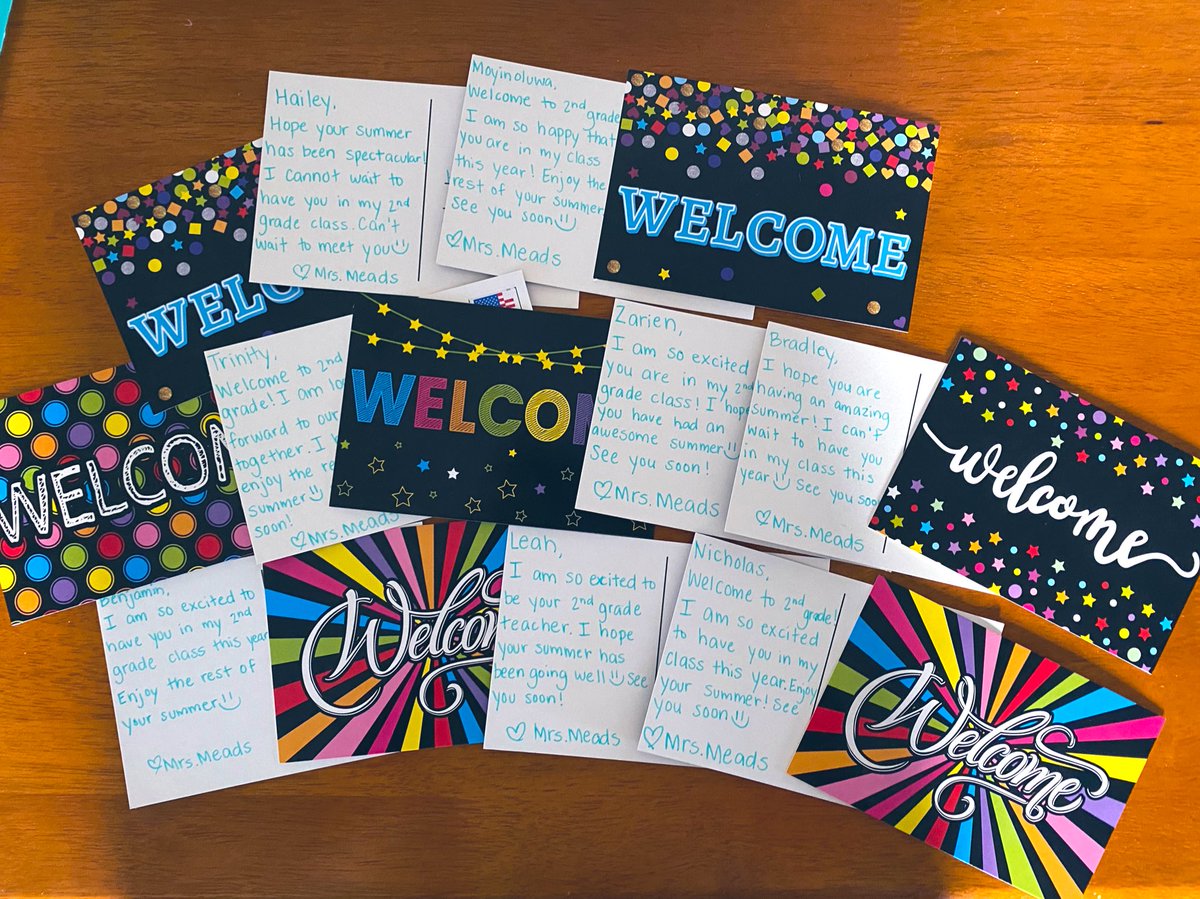 Hailey,
Hope your summer
has been spectacular!
I cannot wait to
have you in my 2nd
grade class. Can't
wait to meet you
Mrs. Meads
Moyinoluwa,
Welcome to 2nd grade
I am so happy that
you are in my class
this year! Enjoy the
rest of your summer
See you soon
Mrs. Meads
WELCOME
WELCO
WELCOM
Trinity,
Welcome to 2nd
grade! I am loo
forward to our
together. I h
enjoy the re
summer
soon!
Mrs. Meads
WELCOM
Zarien,
I am so excited
you are in my 2nd
grade class! I hope
you have had an
awesome summer
See you soon!
Mrs. Meads
Bradley,
I hope you are
having an amazing
summer! I can't
wait to have you
in my class this
year See you soon
Mrs. Meads
welcome
Benjamin,
I am so excited to
have you in my 2nd
grade class this year
Enjoy the rest of
your summer
Mrs. Meads
Welcome
Leah,
I am so excited to
be your 2nd grade
teacher. I hope
your summer has
been going well See
you soon!
Mrs. Meads
Nicholas,
Welcome to 2nd grade!
I am so excited
to have you in my
class this year. Enjoy
your summer! See
you soon
Mrs. Meads
Welcome